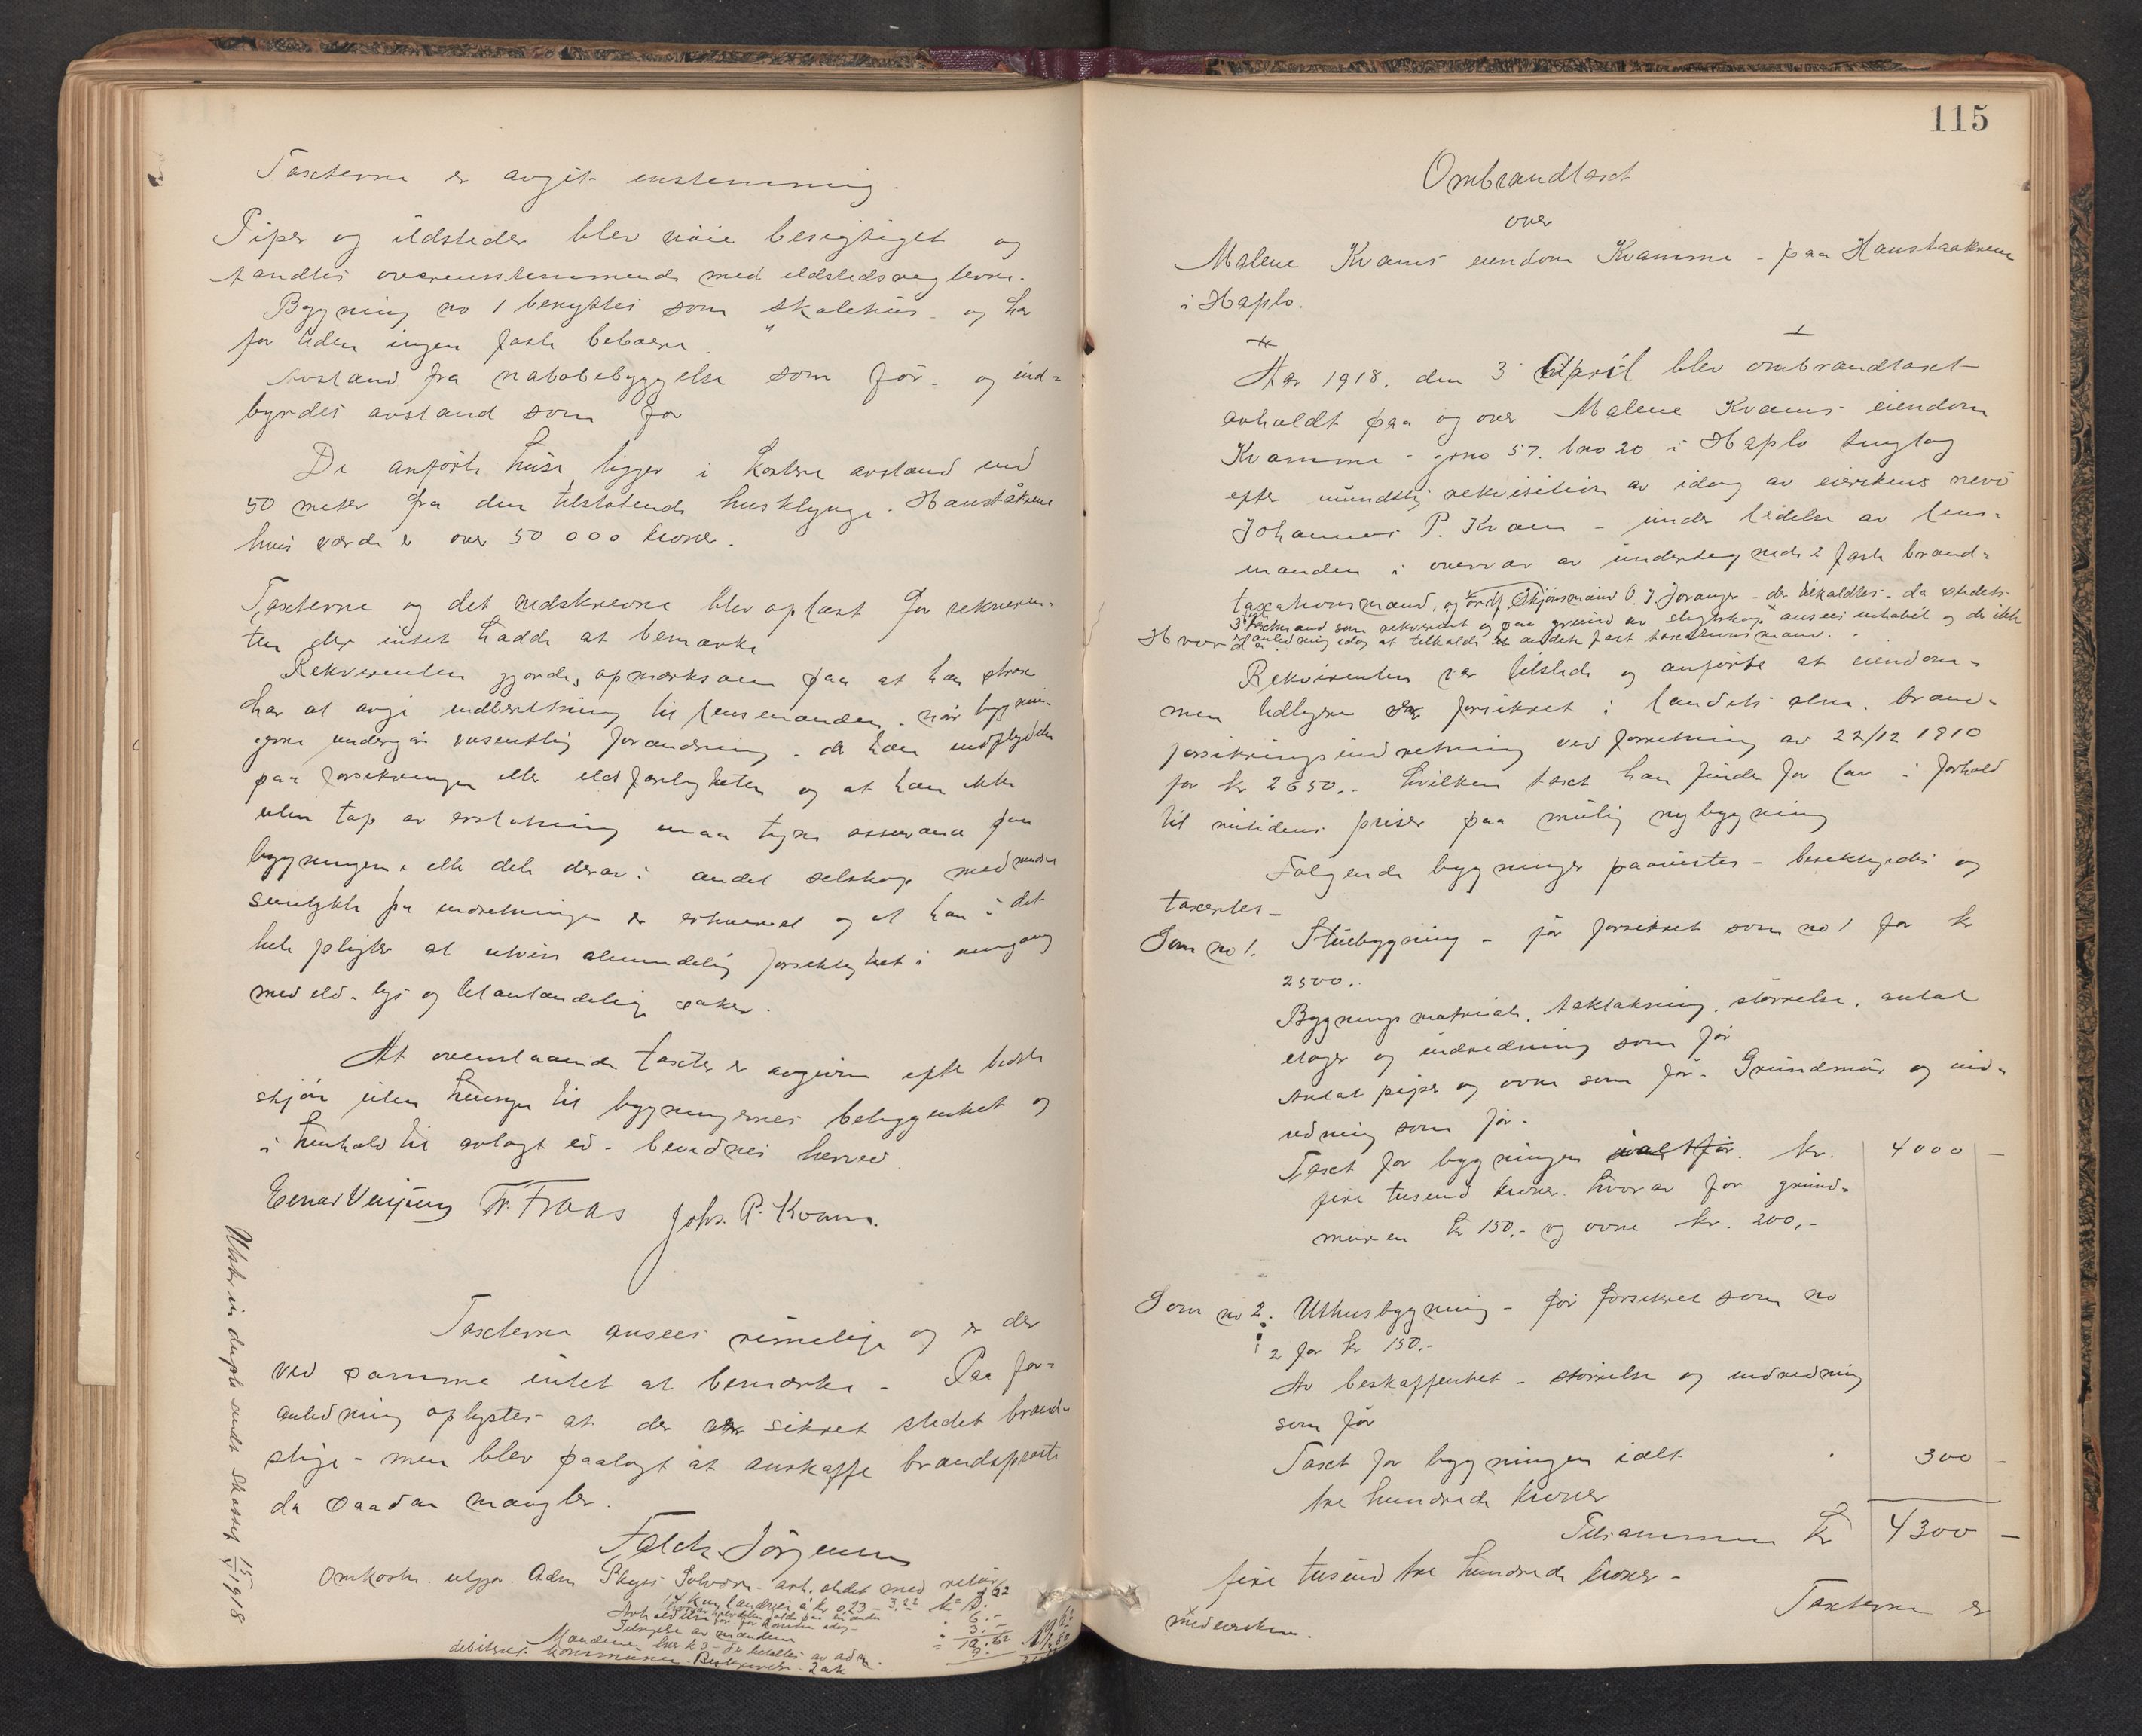 Taxterne er avgit enstemmig.
Piper og ildsteder blev nöie besigtiget og
fandtes overensstemmende med ildstedsreglerne.
Bygning no 1 benyttes som "skolehus" og har
for tiden ingen faste beboere.
Avstand fra nabobebyggelse som för. og ind=
byrdes avstand som för
De anförte huse ligger i kortere avstand end
50 meter fra den tilstötende husklynge. Hanståkrene
hvis værdi er over 50 000 kroner.
Taxterne og det nedskrevne blev oplæst for rekviren-
ten der intet hadde at bemærke
Rekvirenten gjordes opmerksom paa at han straks
har at avgi indberetning til lensmanden. når bygnin-
gerne undergår væsentlig forandring. der kan indflydelse
paa forsikringen eller ildsfarligheten og at han ikke
uten tap av erstatning maa tegne assurance paa
bygningen eller dele derav i andet selskap med mindre
samtykke fra indretningen er erhvervet og at han i det
hele pligter at utvise almindelig forsiktighet i omgang
med ild. lys og letantændelige saker.
At ovenstaaende taxter er avgivne efter bedste
skjön uten hensyn til bygningernes beliggenhet og
i henhold til avlagt ed. bevidnes herved
Fr. Fraas Johs. P. Kvam.
Taxterne ansees rimelige og er der
ved samme intet at bemærke - Paa for=
anledning oplystes at der er sikret stedet brand=
stige - men blev paalagt at anskaffe brandspröite
da saadan mangler.
Falch Jörgensen
Omkostn. utgjør. Adm Skyss Solvorn - ast. stedet med retur
14 km landvei à kr 0,23 - 3.22
6.-
3.-
Mændene hver k 3 - der betales av adm.
debiteret kommunen. 2 ark
Utskr. in duplo sendt 15/5 1918
115
Ombrandtaxt
over
Malene Kvams eiendom Kvamme - paa Hanstaakrene
i Haflo.
Aar 1918. den 3 April blev ombrandtaxt
avholdt paa og over Malene Kvams eiendom
Kvamme - gno 57. bno 20 i Haflo tinglag
efter mündtlig rekvisition av idag av eierskens nevö
Johannes P. Kvam - under ledelse av lens-
manden i overvær av undertegnede 2 faste brand=
taxationsmænd, og Skjönsmand O. J. Joranger - der tilkaldtes - da stedets
som rekvirent og paa grund av slegtskap ansees inhabil og der ikke
Hvor da anledning idag at tilkalde et andet fast taxationsmand.
Rekvirenten var tilstede og anförte at eiendom-
men tidligere er forsikret i landets alm. brand-
forsikringsindretning ved forretning av 22/12 1910
for kr 2650.- hvilken taxt han finder for lav i forhold
til nutidens priser paa mulig nybygning
Fölgende bygninger paavistes - besigtigedes og
taxertes -
Som no 1. Stuebygning - för forsikret som no 1 for kr
2500.-
Bygningsmateriale, taktækning, störrelse, antal
etager og indredning som för
Antal piper og ovne som för. Grundmur og ind-
redning som för.
Taxt for bygningen kr. 4000 -
fire tusend kroner. hvorav for grund=
muren kr 150.- og ovne kr. 200,-
Som no 2. Uthusbygning - för forsikret som no
2 for kr 150.-
Av beskaffenhet - störrelse og indredning
som för
Taxt for bygningen ialt 300 -
tre hundrede kroner
Tilsammen kr 4300 -
fire tusind tre hundrede kroner -
Taxterne er